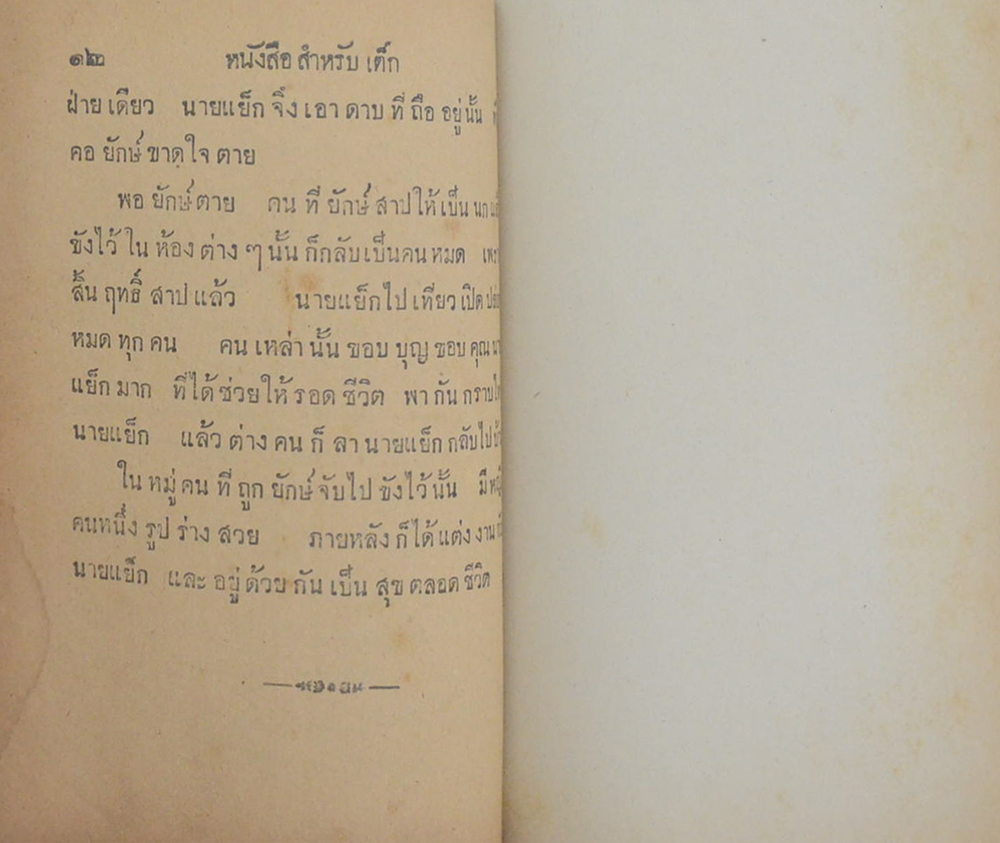 ๑๒ หนังสือ สำหรับ เด็ก
ฝ่าย เดียว นายแย็ก จึ่ง เอา ดาบ ที่ ถือ อยู่นั้น
คอ ยักษ์ ขาดใจ ตาย
พอ ยักษ์ตาย คน ที่ ยักษ์ สาปให้ เป็น นก
ขังไว้ ใน ห้อง ต่าง ๆ นั้น ก็กลับเป็นคน หมด
สิ้น ฤทธิ์ สาป แล้ว นายแย็กไป เที่ยว เปิด
หมด ทุก คน คน เหล่า นั้น ขอบ บุญ ขอบ คุณ
แย็ก มาก ที่ได้ ช่วยให้ รอด ชีวิต พา กัน กราบ
นายแย็ก แล้ว ต่าง คน ก็ ลา นายแย็ก กลับไป
ใน หมู่ คน ที่ ถูก ยักษ์ จับไป ขังไว้ นั้น มี
คนหนึ่ง รูป ร่าง สวย ภายหลัง ก็ได้ แต่ง งาน
นายแย็ก และ อยู่ ด้วย กัน เป็น สุข ตลอด ชีวิต